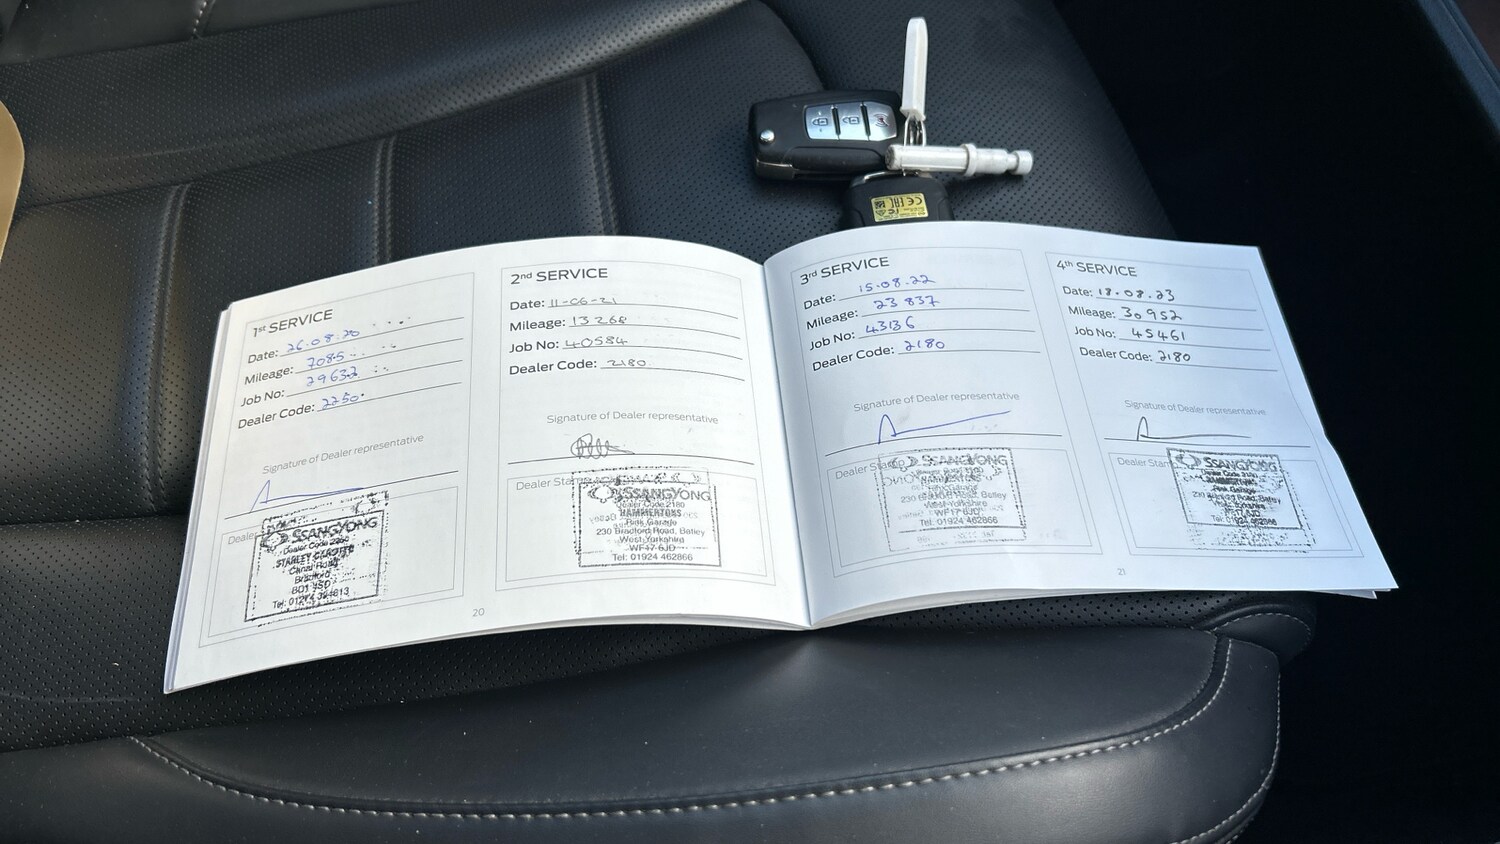 1st SERVICE
Date: 26.08.20
Mileage: 7085
Job No: 29632
Dealer Code: 2250
Signature of Dealer representative
Dealer
SSANGYONG
Dealer Code 2250
Bradford
Tel: 01274
20
2nd SERVICE
Date: 11-06-21
Mileage: 13268
Job No: 40584
Dealer Code: 2180
Signature of Dealer representative
Dealer Stamp
SSANGYONG
Dealer Code 2180
Rink Garage
230 Bradford Road, Batley
West Yorkshire
WF17 6JD
Tel: 01924 462866
3rd SERVICE
Date: 15.08.22
Mileage: 23 837
Job No: 43136
Dealer Code: 2180
Signature of Dealer representative
Dealer Stamp
SSANGYONG
Rink Garage
230 Bradford Road, Batley
West Yorkshire
WF17 6JD
Tel: 01924 462866
4th SERVICE
Date: 18.08.23
Mileage: 30952
Job No: 45461
Dealer Code: 2180
Signature of Dealer representative
Dealer Stamp
SSANGYONG
Rink Garage
230 Bradford Road, Batley
WF17 6JD
Tel: 01924 462866
21
CE EAC